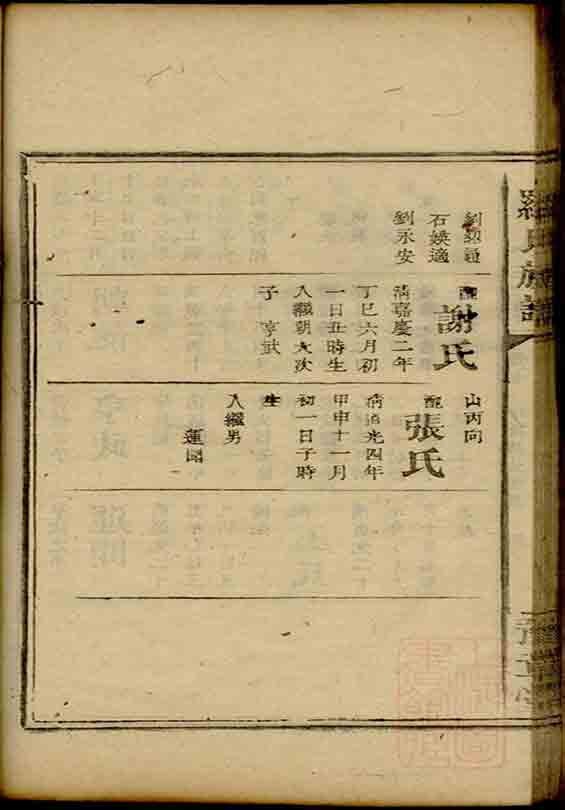 羅氏族譜
豫章堂
劉紹通
石媖適
劉永安
配
謝氏
清嘉慶二年
丁巳六月初
一日丑時生
入繼朝大次
子 亨武
山丙向
配
張氏
清道光四年
甲申十一月
初一日子時
生
入繼男
蓮國